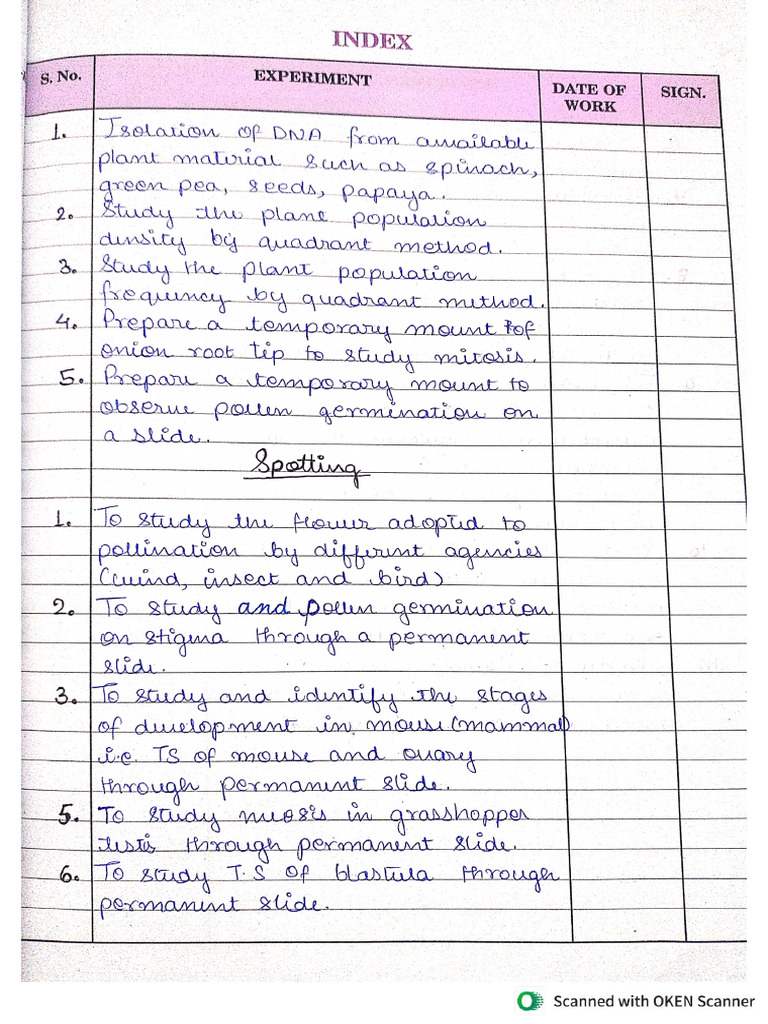 INDEX
S. No. EXPERIMENT DATE OF WORK SIGN.
1. Isolation of DNA from available
plant material such as spinach,
green pea, seeds, papaya.
2. Study the plant population
density by quadrant method.
3. Study the plant population
frequency by quadrant method.
4. Prepare a temporary mount of
onion root tip to study mitosis.
5. Prepare a temporary mount to
observe pollen germination on
a slide.
Spotting
1. To study the flower adopted to
pollination by different agencies
(wind, insect and bird)
2. To study and pollen germination
on stigma through a permanent
slide.
3. To study and identify the stages
of development in mouse (mammal)
i.e. TS of mouse and ovary
through permanent slide.
5. To study meosis in grasshopper
testis through permanent slide.
6. To study T.S of blastula through
permanent slide.
Scanned with OKEN Scanner